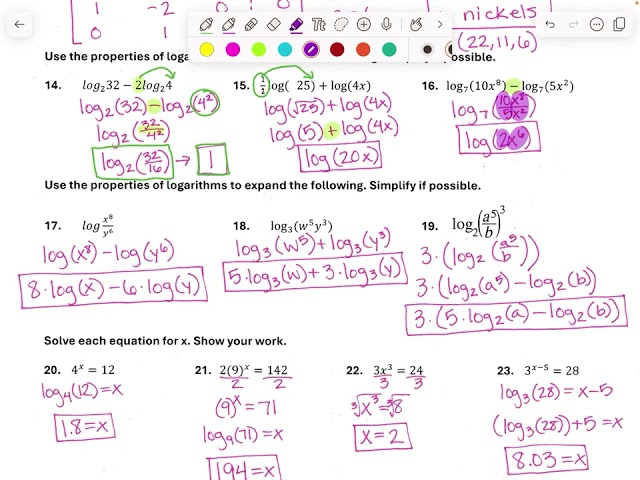 1 -2 0 1 0
nickels
(22,11,6)
Use the properties of loga possible.
14. log₂32 − 2log₂4
log₂(32) − log₂(4²)
log₂(32/4²)
log₂(32/16) → 1
15. ½log( 25) + log(4x)
log(√25) + log(4x)
log(5) + log(4x)
log(20x)
16. log₇(10x⁸) − log₇(5x²)
log₇(10x⁸/5x²)
log(2x⁶)
Use the properties of logarithms to expand the following. Simplify if possible.
17. log x⁸/y⁶
log(x⁸) − log(y⁶)
8·log(x) − 6·log(y)
18. log₃(w⁵y³)
log₃(w⁵) + log₃(y³)
5·log₃(w) + 3·log₃(y)
19. log₂(a⁵/b)³
3·(log₂(a⁵/b))
3·(log₂(a⁵) − log₂(b))
3·(5·log₂(a) − log₂(b))
Solve each equation for x. Show your work.
20. 4ˣ = 12
log₄(12) = x
1.8 = x
21. 2(9)ˣ = 142
2 2
(9)ˣ = 71
log₉(71) = x
194 = x
22. 3x³ = 24
3 3
³√x³ = ³√8
x = 2
23. 3ˣ⁻⁵ = 28
log₃(28) = x − 5
(log₃(28)) + 5 = x
8.03 = x